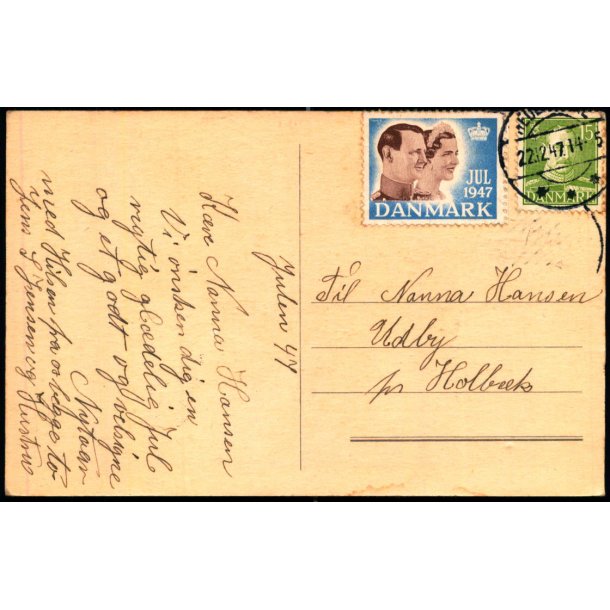 Julen 47
Kære Nanna Hansen
Vi önsker dig en
rigtig glædelig Jul
og et godt og velsigne
Nytaar
med Hilsen fra os begge to
Jens S. Jensen og Hustru
JUL
1947
DANMARK
15
DANMARK
22.12.47.14-15
Til Nanna Hansen
Udby
pr Holbæk